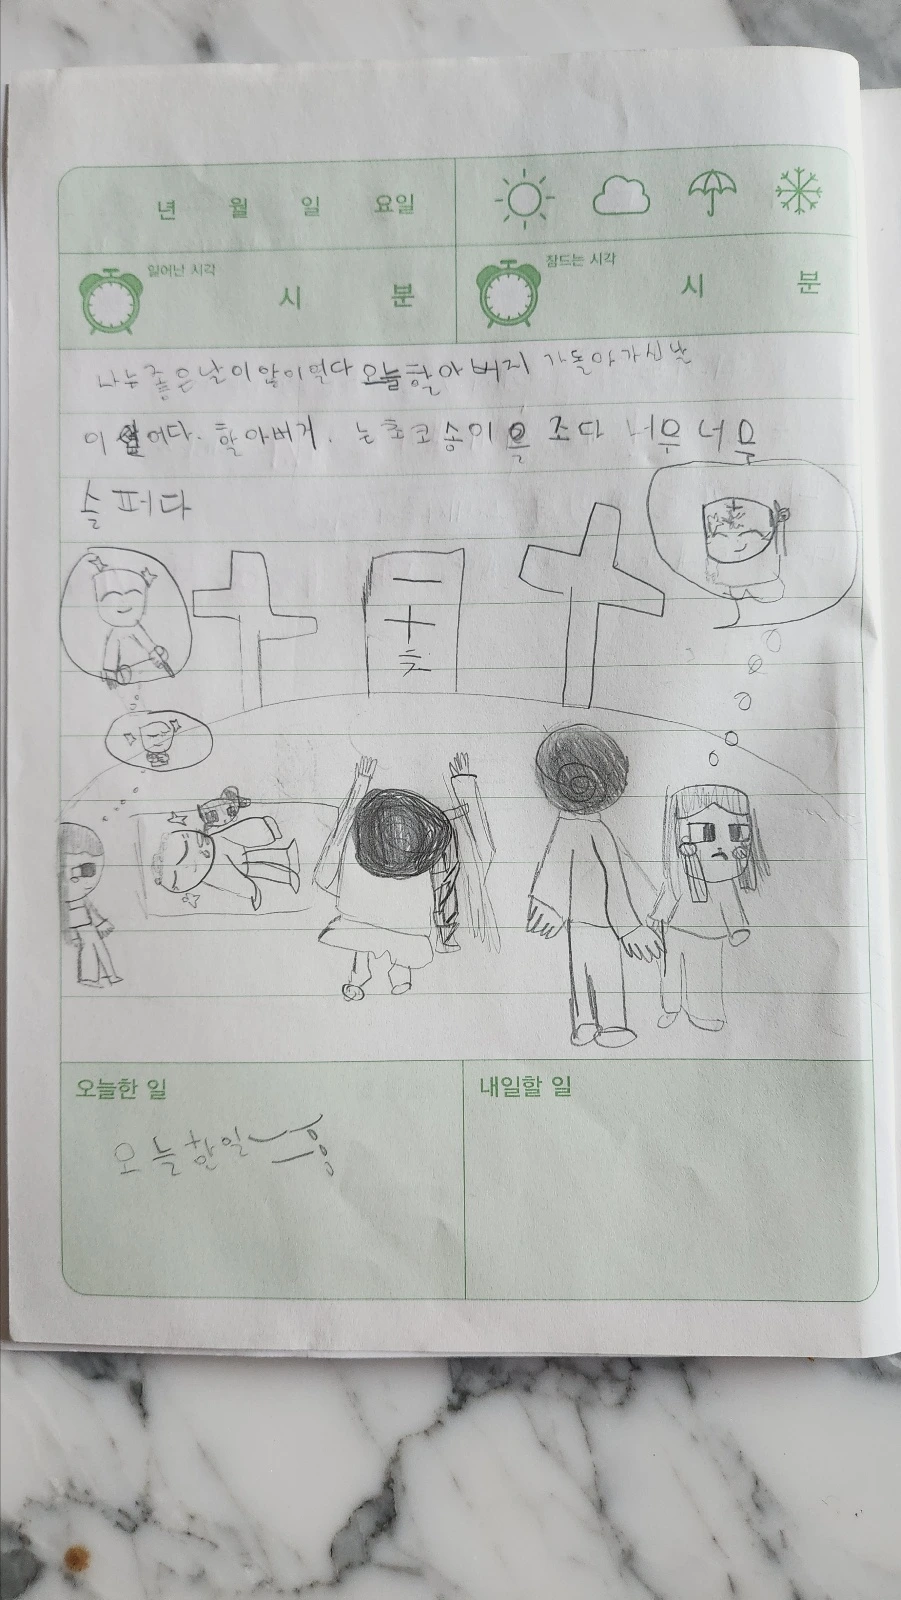 년 월 일 요일
일어난 시각 시 분
잠드는 시각 시 분
나는 좋은날이않이였다 오늘할아버지가돌아가신날
이 어다. 할아버지. 는초코송이을 조다 너무너무
슬퍼다
오늘한 일
오늘한일
내일할 일